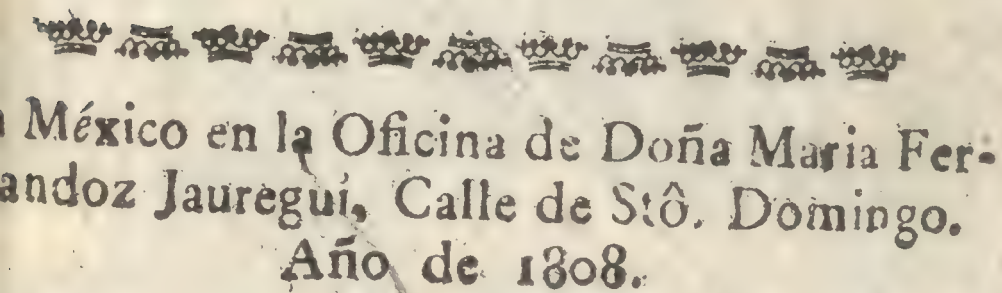 México en la Oficina de Doña Maria Fer-
andoz Jauregui, Calle de Stô. Domingo.
Año de 1808.